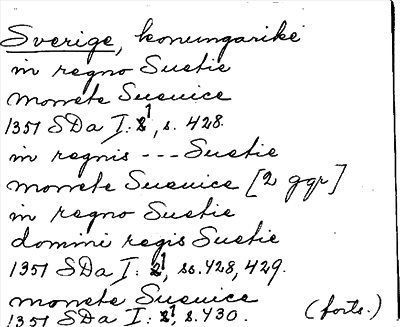 Sverige, konungarike
in regno Suetie
monete Sueuice
1351 SDa I: 1, s. 428.
in regnis --- Suetie
monete Sueuice [2 ggr]
in regno Suetie
domini regis Suetie
1351 SDa I: 1, ss. 428, 429.
monete Sueuice
1351 SDa I: 1, s. 430. (forts.)